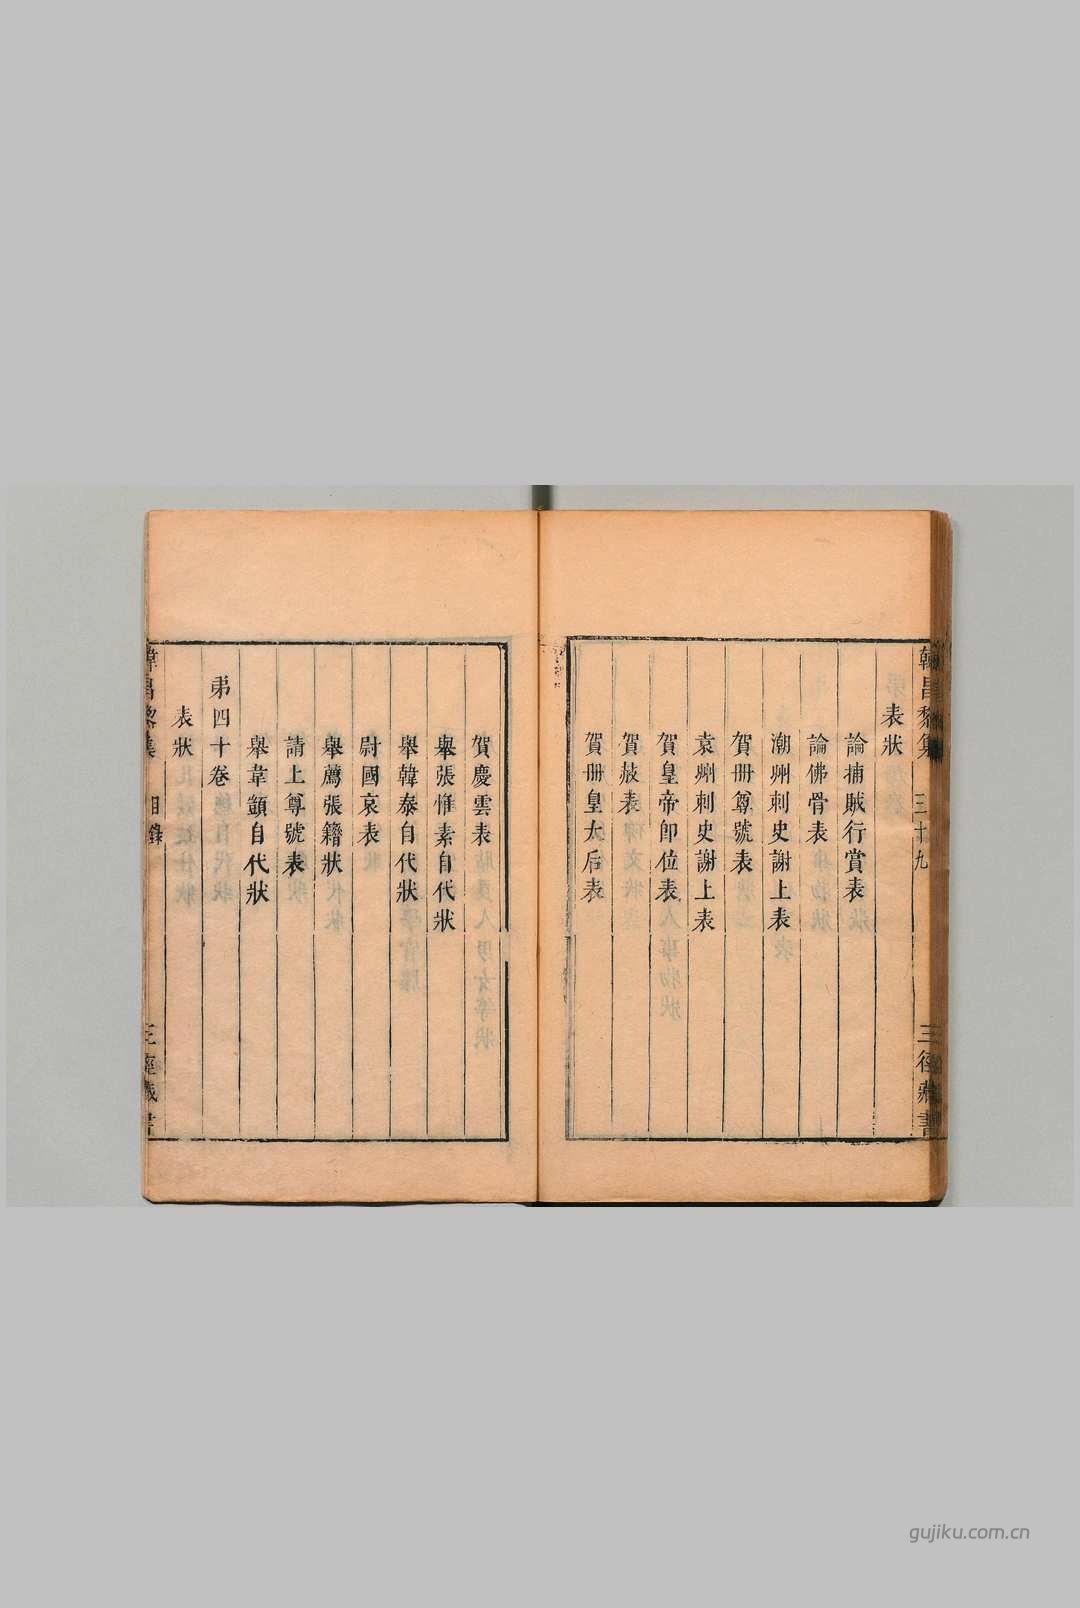 韓昌黎集
三十九
三徑藏書
表狀
論捕賊行賞表
論佛骨表
潮州刺史謝上表
賀册尊號表
袁州刺史謝上表
賀皇帝卽位表
賀赦表
賀册皇太后表
賀慶雲表
舉張惟素自代狀
舉韓泰自代狀
慰國哀表
舉薦張籍狀
請上尊號表
舉韋顗自代狀
弟四十卷
表狀
韓昌黎集
目錄
三徑藏書
gujiku.com.cn